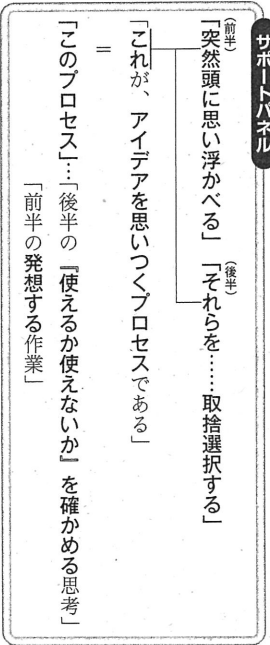 サポートパネル
(前半)
「突然頭に思い浮かべる」
(後半)
「それらを……取捨選択する」
「これが、アイデアを思いつくプロセスである」
＝
「このプロセス」…「後半の『使えるか使えないか』を確かめる思考」
「前半の発想する作業」